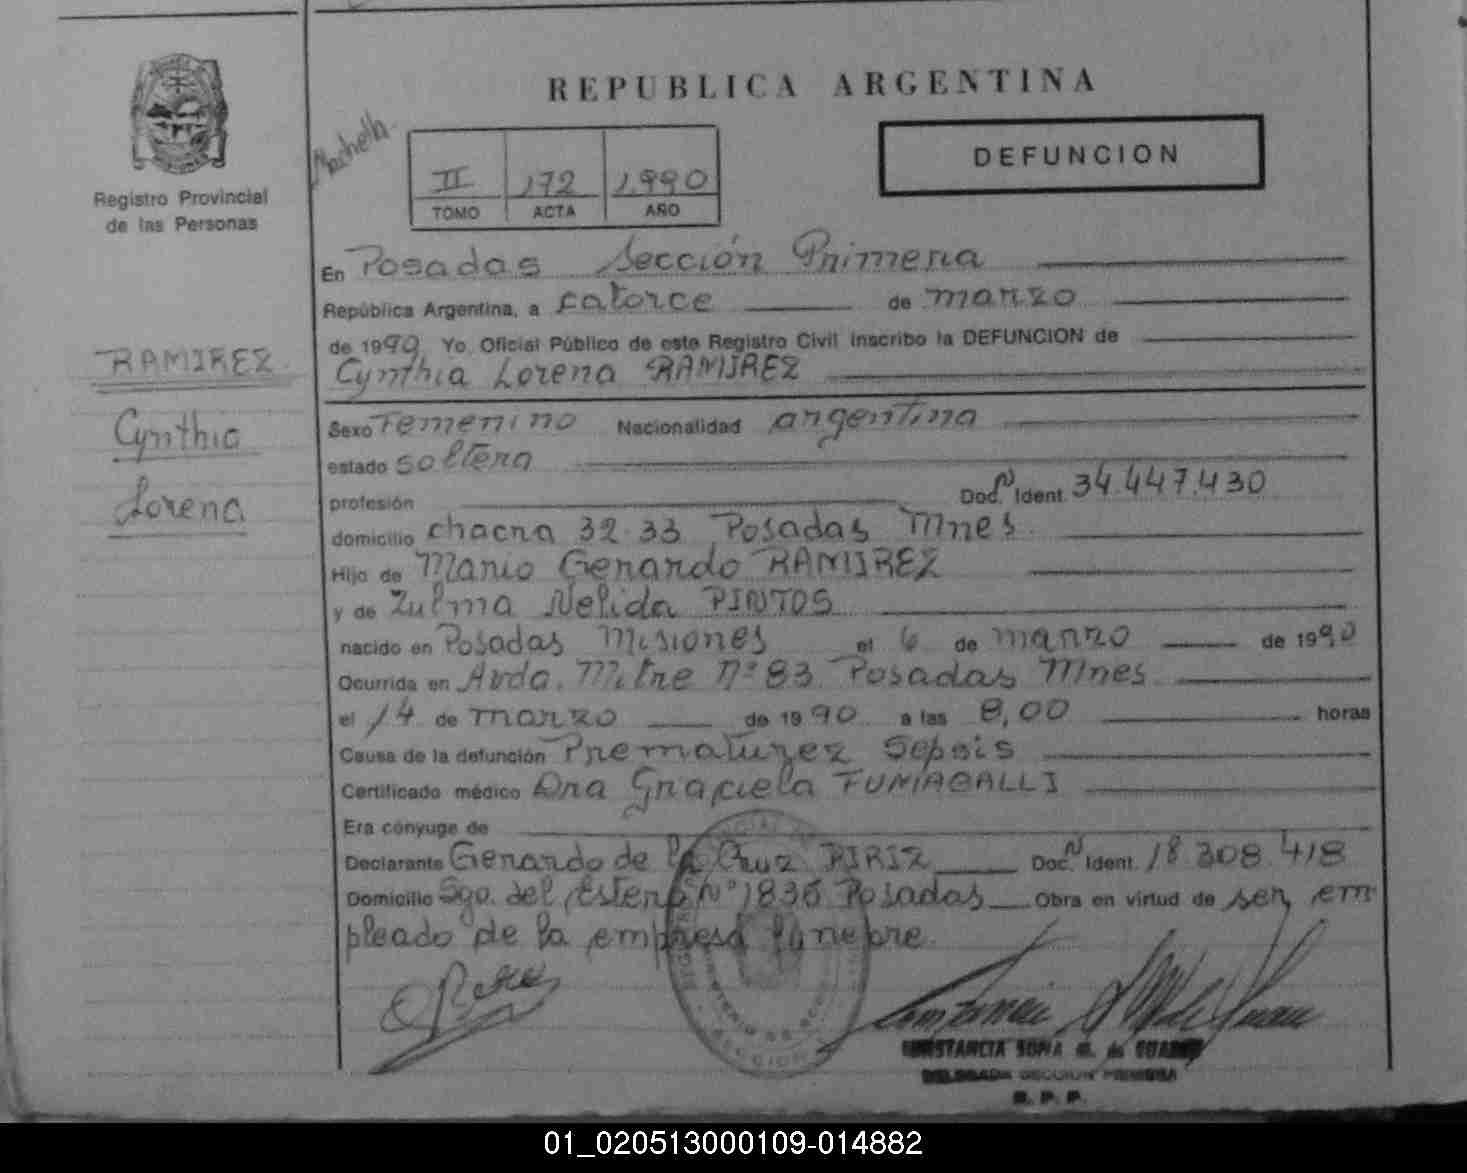 REPUBLICA ARGENTINA
DEFUNCION
Registro Provincial
de las Personas
II 172 1.990
TOMO ACTA AÑO
En Posadas Sección Primera
República Argentina, a catorce de marzo
de 1990 Yo, Oficial Público de este Registro Civil inscribo la DEFUNCION de
Cynthia Lorena RAMIREZ
RAMIREZ
Cynthia
Lorena
Sexo Femenino Nacionalidad argentina
estado soltera
profesión Doc. N Ident. 34.447.430
domicilio chacra 32-33 Posadas Mnes.
Hijo de Mario Gerardo RAMIREZ
y de Zulma Nelida PINTOS
nacido en Posadas Misiones el 6 de marzo de 1990
Ocurrida en Avda. Mitre Nº 83 Posadas Mnes.
el 14 de marzo de 1990 a las 8,00 horas
Causa de la defunción Prematurez Sepsis
Certificado médico Dra Graciela FUMAGALLI
Era cónyuge de
Declarante Gerardo de la Cruz PIRIZ Doc. N Ident. 18.308.418
Domicilio Sgo. del Estero Nº 1836 Posadas Obra en virtud de ser em
pleado de la empresa funebre.
CONSTANCIA SONIA M. de
DELEGADA SECCION PRIMERA
R. P. P.
01_020513000109-014882